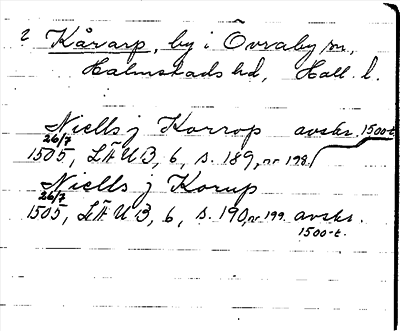 2 Kårarp, by i Övraby sn,
Halmstads hd, Hall. l.
Niells j Korrop avskr. 1500-t.
26/7
1505, LÄUB, 6, s. 189, nr 198.
Niells j Korup
26/7
1505, LÄUB, 6, s. 190, nr 199. avskr.
1500-t.